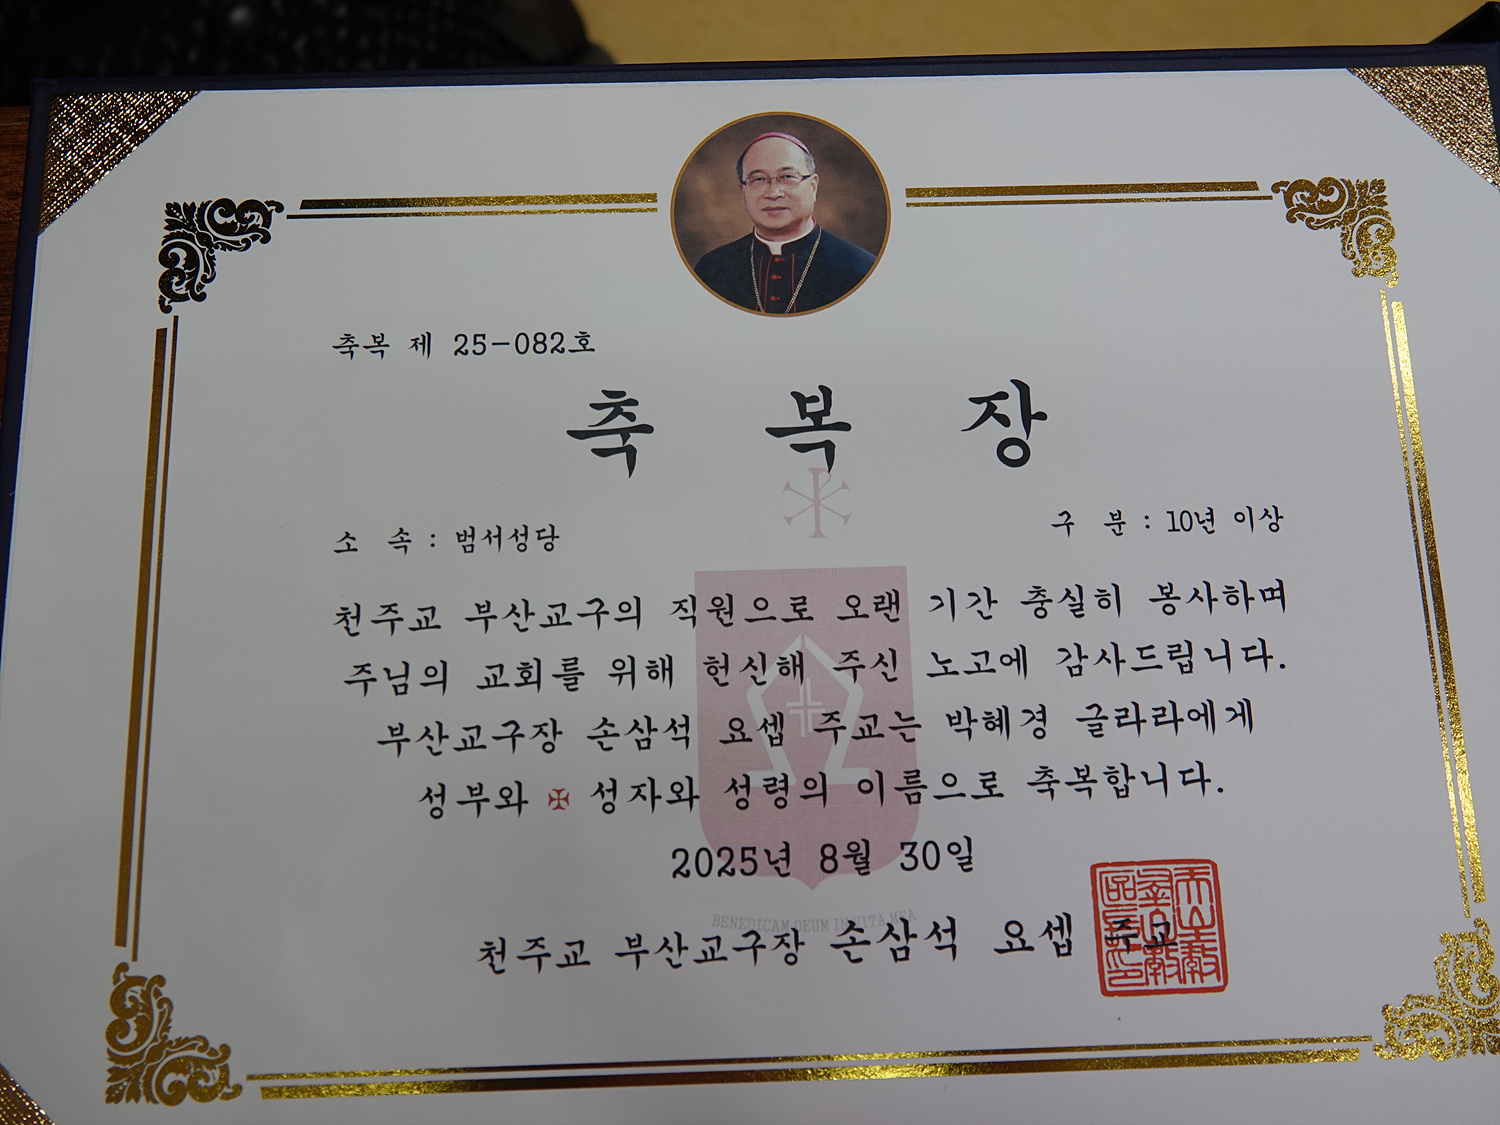 축복 제 25-082호
축 복 장
소 속 : 범서성당
구 분 : 10년 이상
천주교 부산교구의 직원으로 오랜 기간 충실히 봉사하며
주님의 교회를 위해 헌신해 주신 노고에 감사드립니다.
부산교구장 손삼석 요셉 주교는 박혜경 글라라에게
성부와 ✠ 성자와 성령의 이름으로 축복합니다.
2025년 8월 30일
BENEDICAM DEUM IN VITA MEA
천주교 부산교구장 손삼석 요셉 주교